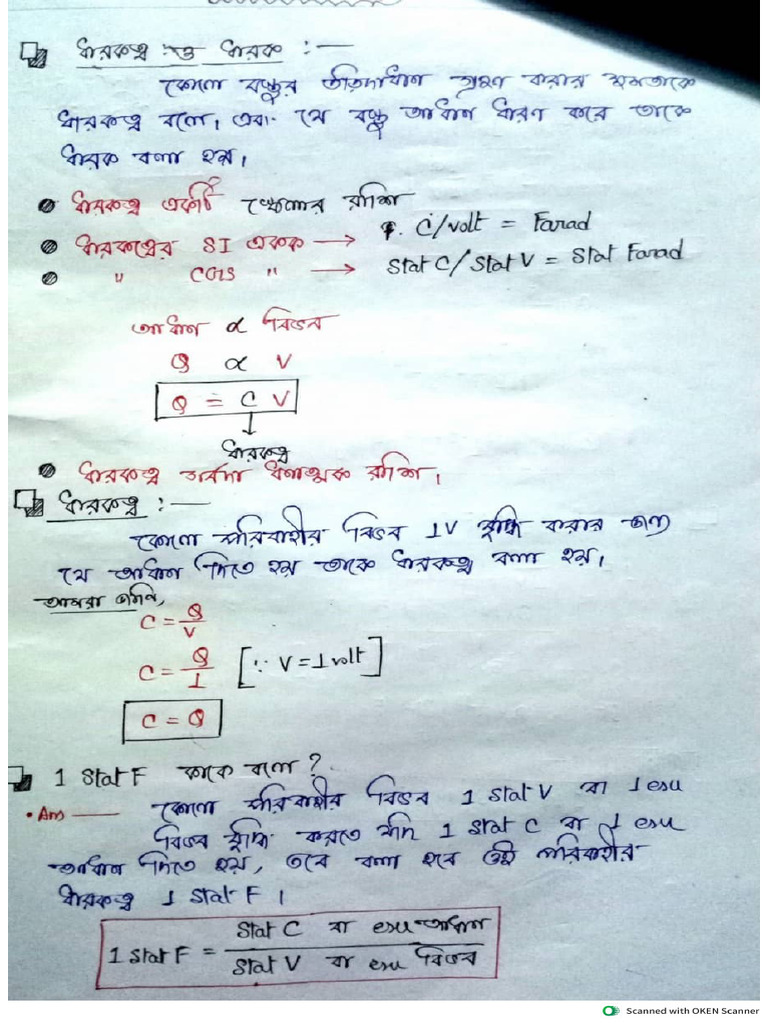 ধারকত্ব ও ধারক :—
কোনো বস্তুর তড়িদাধান গ্রহণ করার ক্ষমতাকে
ধারকত্ব বলে। এবং যে বস্তু আধান ধারণ করে তাকে
ধারক বলা হয়।
ধারকত্ব একটি স্কেলার রাশি
ধারকত্বের SI একক → C/volt = Farad
" CGS " → stat C/stat V = stat Farad
আধান ∝ বিভব
Q ∝ V
Q = C V
↓
ধারকত্ব
ধারকত্ব সর্বদা ধনাত্মক রাশি।
ধারকত্ব :—
কোনো পরিবাহীর বিভব 1V বৃদ্ধি করার জন্য
যে আধান দিতে হয় তাকে ধারকত্ব বলা হয়।
আমরা জানি,
C = Q/V
C = Q/1 [∵ V = 1 volt]
C = Q
1 stat F কাকে বলে ?
• Ans — কোনো পরিবাহীর বিভব 1 stat V বা 1 esu
বিভব বৃদ্ধি করতে যদি 1 stat C বা 1 esu
আধান দিতে হয়, তবে বলা হবে ওই পরিবাহীর
ধারকত্ব 1 stat F ।
1 stat F = stat C বা esu আধান / stat V বা esu বিভব
Scanned with OKEN Scanner